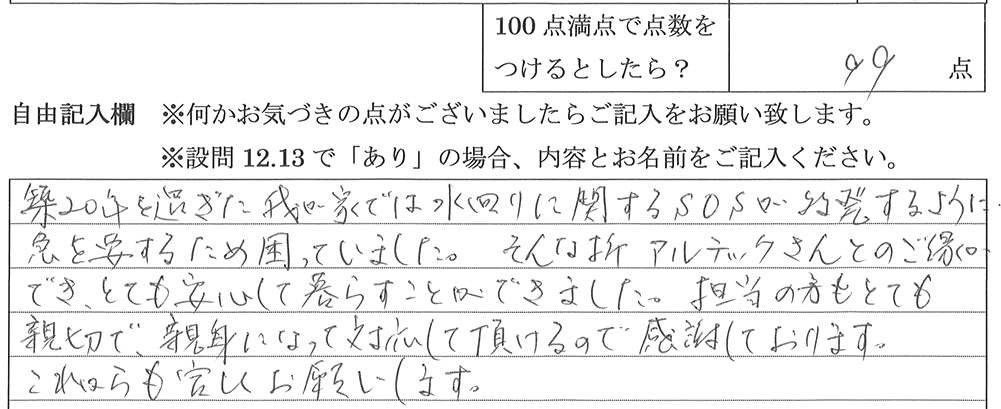 100点満点で点数を
つけるとしたら？
99 点
自由記入欄 ※何かお気づきの点がございましたらご記入をお願い致します。
※設問12.13で「あり」の場合、内容とお名前をご記入ください。
築20年を過ぎた我が家では水回りに関するSOSが 発するように
急を要するため困っていました。そんな折アルテックさんとのご縁が
でき、とても安心して暮らすことができました。担当の方もとても
親切で、親身になって対応して頂けるので感謝しております。
これからも宜しくお願いします。